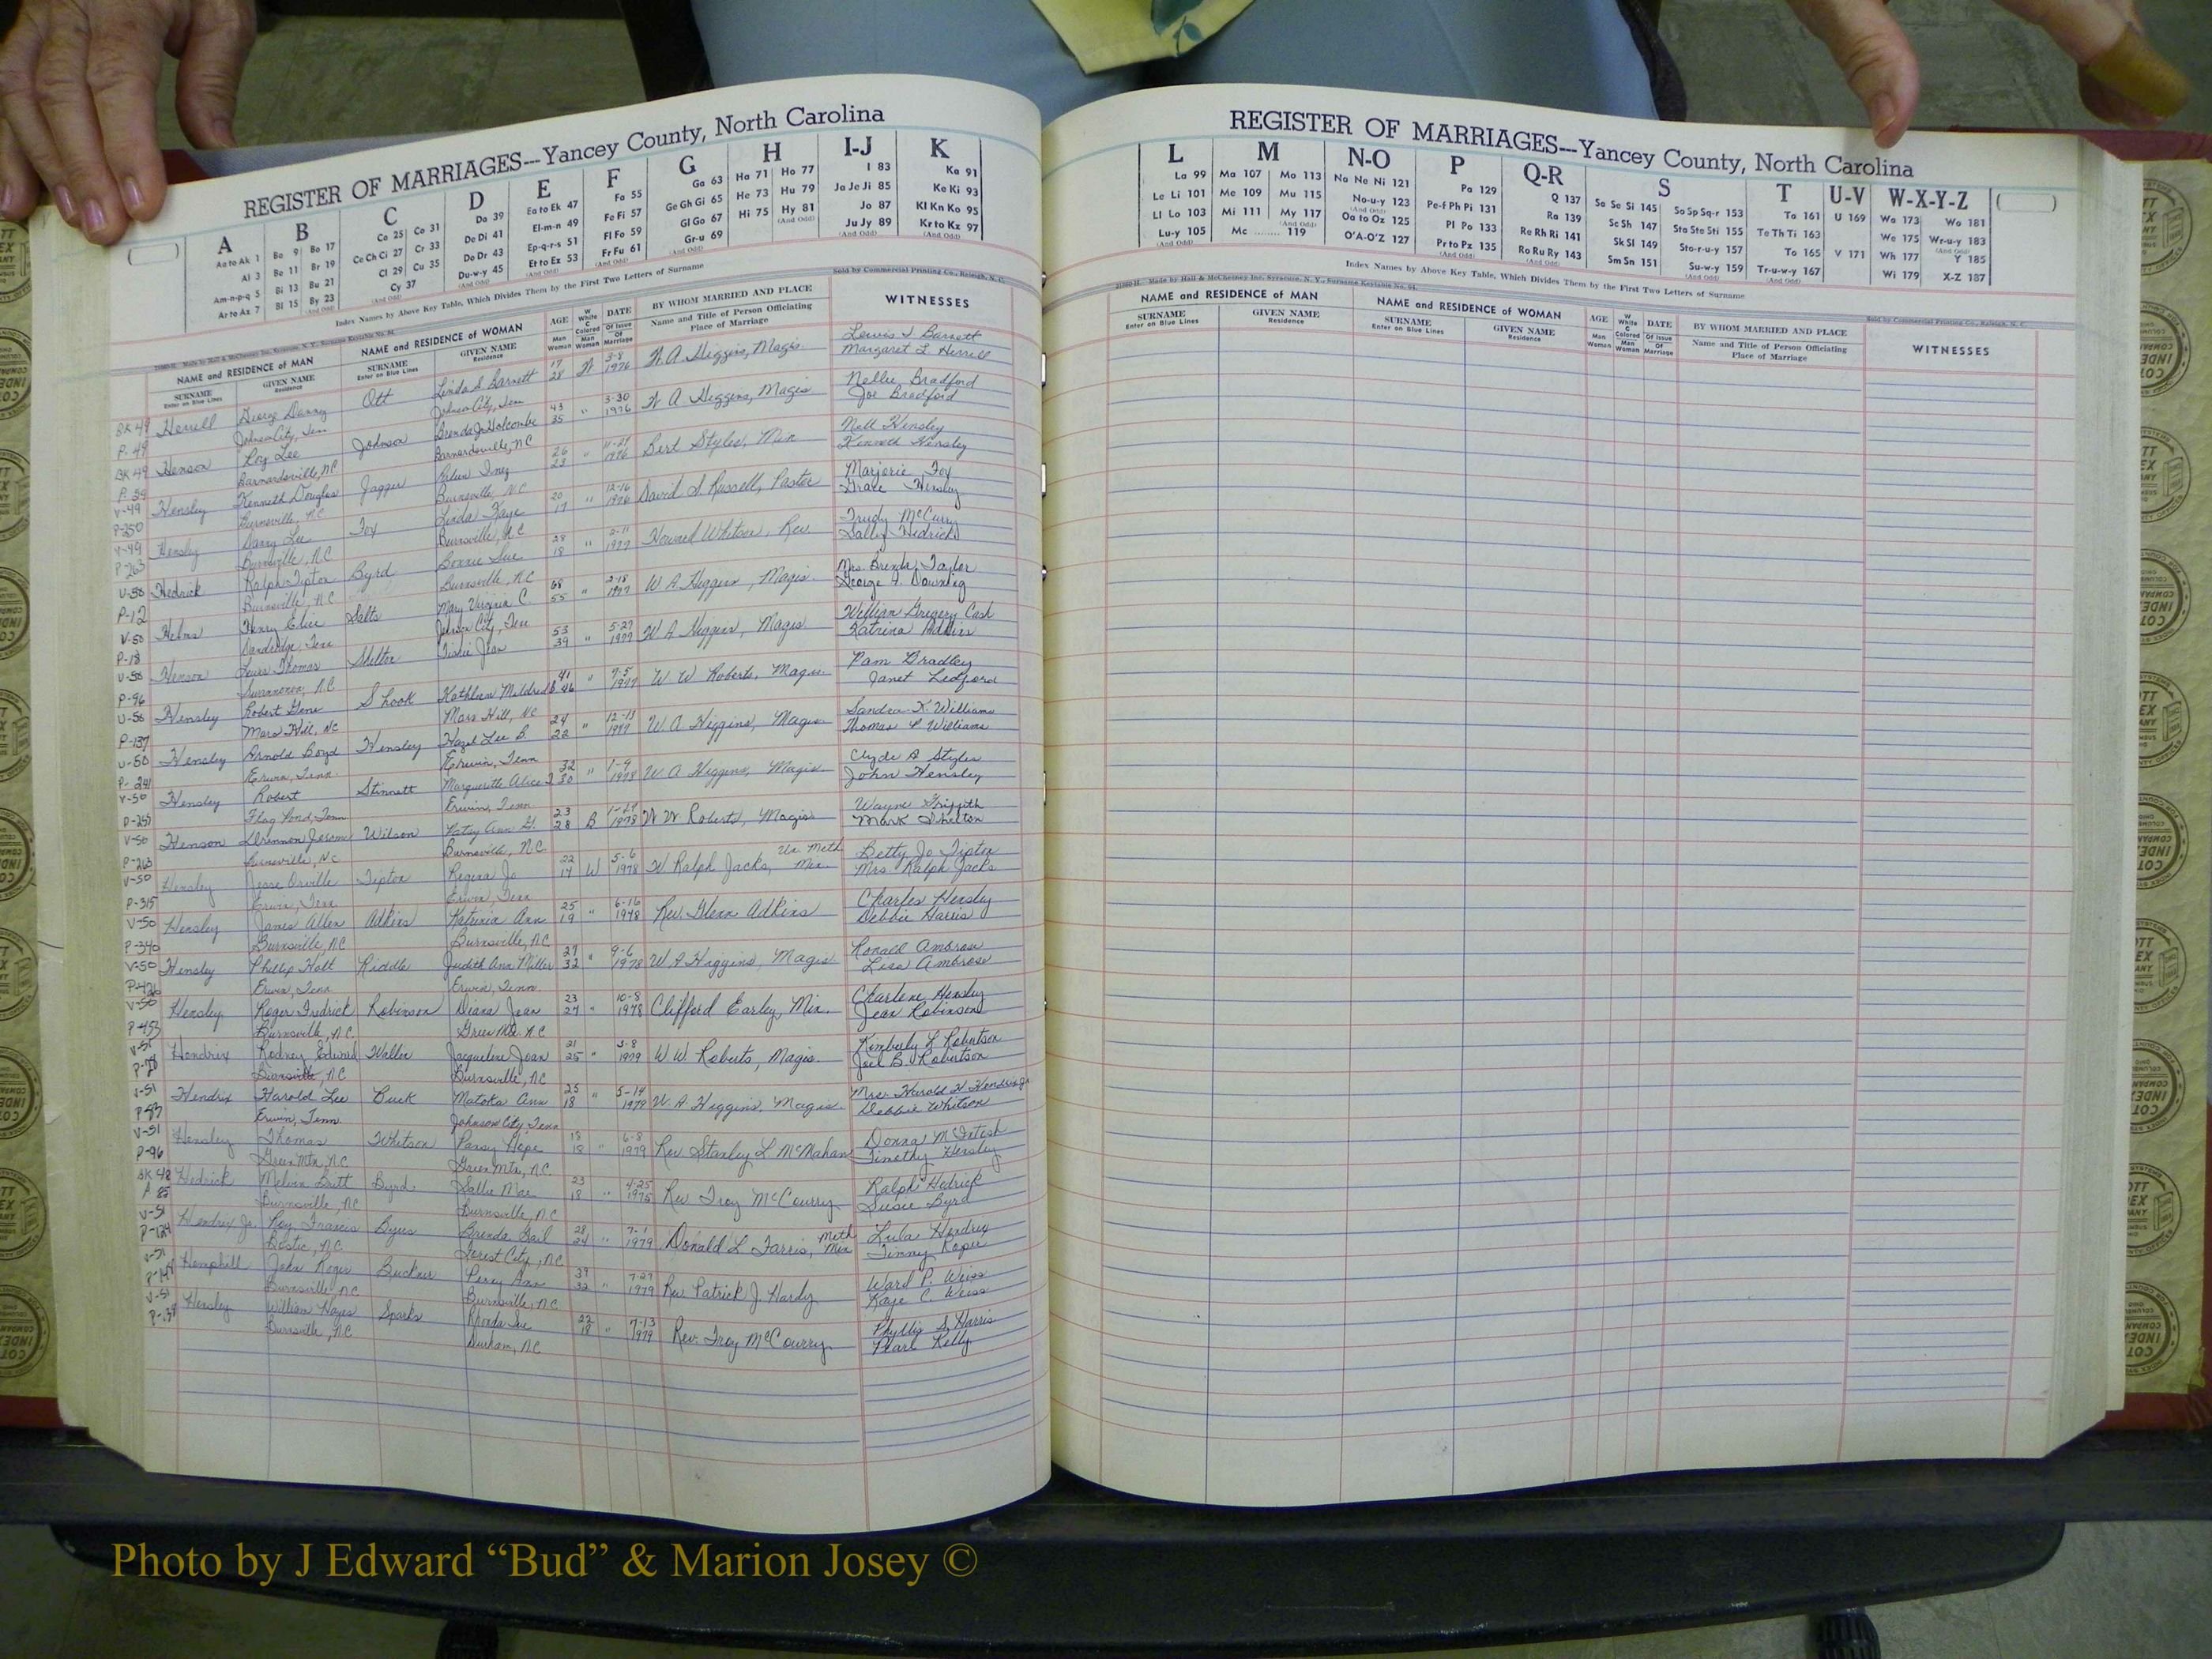 REGISTER OF MARRIAGES---Yancey County, North Carolina
A B C D E F G H I-J K
Aa to Ak 1 Ba 9 Bo 17 Ca 25 Co 31 Da 39 Ea to Ek 47 Fa 55 Ga 63 Ha 71 Ho 77 I 83 Ka 91
Al 3 Be 11 Br 19 Ce Ch Ci 27 Cr 33 De Di 41 El-m-n 49 Fe Fi 57 Ge Gh Gi 65 He 73 Hu 79 Ja Je Ji 85 Ke Ki 93
Am-n-p-q 5 Bi 13 Bu 21 Cl 29 Cu 35 Do Dr 43 Ep-q-r-s 51 Fl Fo 59 Gl Go 67 Hi 75 Hy 81 Jo 87 Kl Kn Ko 95
Ar to Az 7 Bl 15 By 23 Cy 37 Du-w-y 45 Et to Ez 53 Fr Fu 61 Gr-u 69 Ju Jy 89 Kr to Kz 97
Index Names by Above Key Table, Which Divides Them by the First Two Letters of Surname
Sold by Commercial Printing Co., Raleigh, N. C.
NAME and RESIDENCE OF MAN NAME and RESIDENCE OF WOMAN AGE DATE BY WHOM MARRIED AND PLACE WITNESSES
SURNAME GIVEN NAME SURNAME GIVEN NAME Man Woman Of Issue Of Marriage Name and Title of Person Officiating
Enter on Blue Lines Residence Enter on Blue Lines Residence Place of Marriage
BK 49 Herrell George Danny Ott Linda S. Barnett 17 W 3-8 W. A. Higgins, Magis. Lewis I Barnett
P. 49 Johnson City, Tenn Johnson City, Tenn 28 1976 Margaret L. Herrell
BK 49 Henson Roy Lee Johnson Brenda Jo Holcombe 43 " 3-30 W A Higgins, Magis Nellie Bradford
P. 59 Barnardsville, NC Barnardsville, NC 35 1976 Joe Bradford
V-49 Hensley Kenneth Douglas Inez 26 " 11-27 Bert Styles, Min Nell Hensley
P-250 Burnsville, NC Burnsville, NC 23 1976 Kenneth Hensley
V-49 Hensley Danny Lee Fox Linda Faye 20 " 12-16 David S. Russell, Pastor Marjorie Fox
P 263 Burnsville, N.C Burnsville, N.C 17 1976 Grace Hensley
V-50 Hedrick Ralph Tipton Byrd Bonnie Sue 28 " 1977 Howard Whitson, Rev Trudy McCurry
P-12 Burnsville, N.C Burnsville, N.C 18 Sally Hedrick
V-50 Helms Henry Salts Mary Virginia C. 68 " 2-18 W A Higgins, Magis. Mrs. Brenda Taylor
P-18 Dandridge, Tenn Johnson City, Tenn 55 1977 George Downing
V-50 Henson Lewis Thomas Shelton Jean 53 " 5-27 W. A Higgins, Magis William Gregory Cash
P-96 Swannanoa, N.C. 39 1977 Katrina
V-50 Hensley Robert Gene Shook Kathleen Mildred B 41 " 7-5 W W Roberts, Magis Pam Bradley
P-137 Mars Hill, NC Mars Hill, NC 46 1977 Janet Ledford
V-50 Hensley Arnold Boyd Hensley Hazel Lee B 24 " 12-13 W. A. Higgins, Magis Sandra K. Williams
P-241 Erwin, Tenn. Erwin, Tenn 22 1977 Thomas Williams
V-50 Hensley Robert Stinnett Marguerite Alice 32 " 1-9 W A Higgins, Magis Clyde A Styles
P-255 Flag Pond, Tenn Erwin, Tenn 30 1978 John Hensley
V-50 Henson Jerome Wilson Patsy Ann 23 B W. W. Roberts, Magis Wayne Griffith
P-263 Burnsville, NC Burnsville, NC 28 1978 Mark Shelton
V-50 Hensley Jesse Orville Tipton Regina Jo 22 W 5-6 W Ralph Jacks, Un. Meth Min. Betty Jo Tipton
P-315 Erwin, Tenn Erwin, Tenn 17 1978 Mrs. Ralph Jacks
V-50 Hensley James Allen Adkins Ann 25 " 6-16 Rev. Glenn Adkins Charles Hensley
P-340 Burnsville, NC Burnsville, NC 19 1978 Debbie Harris
V-50 Hensley Phillip Holt Riddle Judith Ann Miller 27 " 9-6 W A Higgins, Magis Ronald Ambrose
Erwin, Tenn Erwin, Tenn. 32 1978 Lisa Ambrose
V-50 Hensley Roger Fredrick Robinson Diana Jean 23 " 10-8 Clifford Earley, Min. Charlene Hensley
P-453 Burnsville, N.C. Green Mtn. N.C 24 1978 Jean Robinson
V-51 Hendrix Rodney Edward Waller Jacqueline Joan 21 " 3-8 W W. Roberts, Magis. Kimberly L Robertson
Burnsville, NC Burnsville, NC 25 1979 Joel B. Robertson
V-51 Hendrix Harold Lee Buck Matoka Ann 25 " 5-14 W. A. Higgins, Magis Mrs. Harold H Hendrix Jr
Erwin, Tenn. Johnson City, Tenn 18 1979 Debbie Whitson
V-51 Hensley Thomas Whitson Pansy Hope 18 " 6-8 Rev Stanley L McMahan Donna McIntosh
P-96 Green Mtn, N.C Green Mtn, N.C. 18 1979 Timothy Hensley
BK 48 Hedrick Melvin Britt Byrd Sallie Mae 23 " 4-25 Rev Troy McCourry Ralph Hedrick
P 85 Burnsville, NC Burnsville, NC 18 1975 Susie Byrd
V-51 Hendrix Jr. Roy Francis Byers Brenda Gail 28 " 7-1 Donald L Farris, Meth Min Lula Hendrix
P-124 Bostic, NC Forest City, NC 24 1979 Jimmy Roper
V-51 Hemphill John Roger Buckner Ann 39 " 7-27 Rev Patrick J. Hardy Ward P. Weiss
Burnsville, NC Burnsville, NC 32 1979 Kaye C. Weiss
V-51 Hensley William Hayes Sparks Rhonda Sue 22 " 7-13 Rev. Troy McCourry Phyllis S. Harris
Burnsville, N.C Durham, NC 18 1979 Pearl Kelly
REGISTER OF MARRIAGES---Yancey County, North Carolina
L M N-O P Q-R S T U-V W-X-Y-Z
La 99 Ma 107 Mo 113 Na Ne Ni 121 Pa 129 Q 137 Sa Se Si 145 So Sp Sq-r 153 Ta 161 U 169 Wa 173 Wo 181
Le Li 101 Me 109 Mu 115 No-u-y 123 Pe-f Ph Pi 131 Ra 139 Sc Sh 147 Sta Ste Sti 155 Te Th Ti 163 We 175 Wr-u-y 183
Ll Lo 103 Mi 111 My 117 Oa to Oz 125 Pl Po 133 Re Rh Ri 141 Sk Sl 149 Sto-r-u-y 157 To 165 V 171 Wh 177 Y 185
Lu-y 105 Mc ........ 119 O'A-O'Z 127 Pr to Pz 135 Ro Ru Ry 143 Sm Sn 151 Su-w-y 159 Tr-u-w-y 167 Wi 179 X-Z 187
Index Names by Above Key Table, Which Divides Them by the First Two Letters of Surname
Sold by Commercial Printing Co., Raleigh, N. C.
NAME and RESIDENCE OF MAN NAME and RESIDENCE OF WOMAN AGE DATE BY WHOM MARRIED AND PLACE WITNESSES
SURNAME GIVEN NAME SURNAME GIVEN NAME Man Woman Of Issue Of Marriage Name and Title of Person Officiating
Enter on Blue Lines Residence Enter on Blue Lines Residence Place of Marriage
Photo by J Edward “Bud” & Marion Josey ©